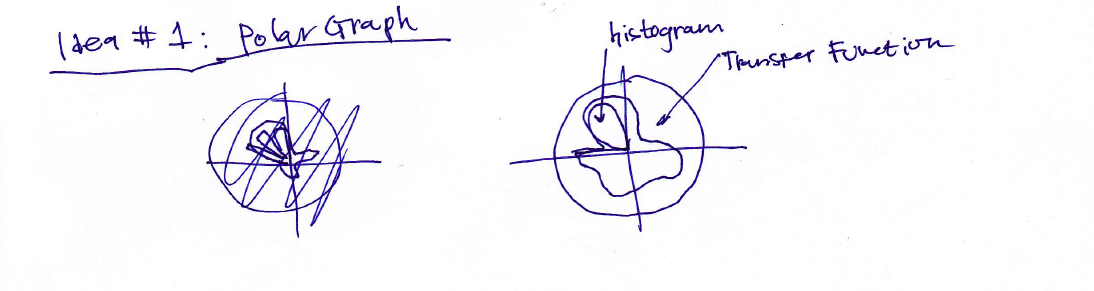 Idea # 1: Polar Graph
histogram
Transfer Function